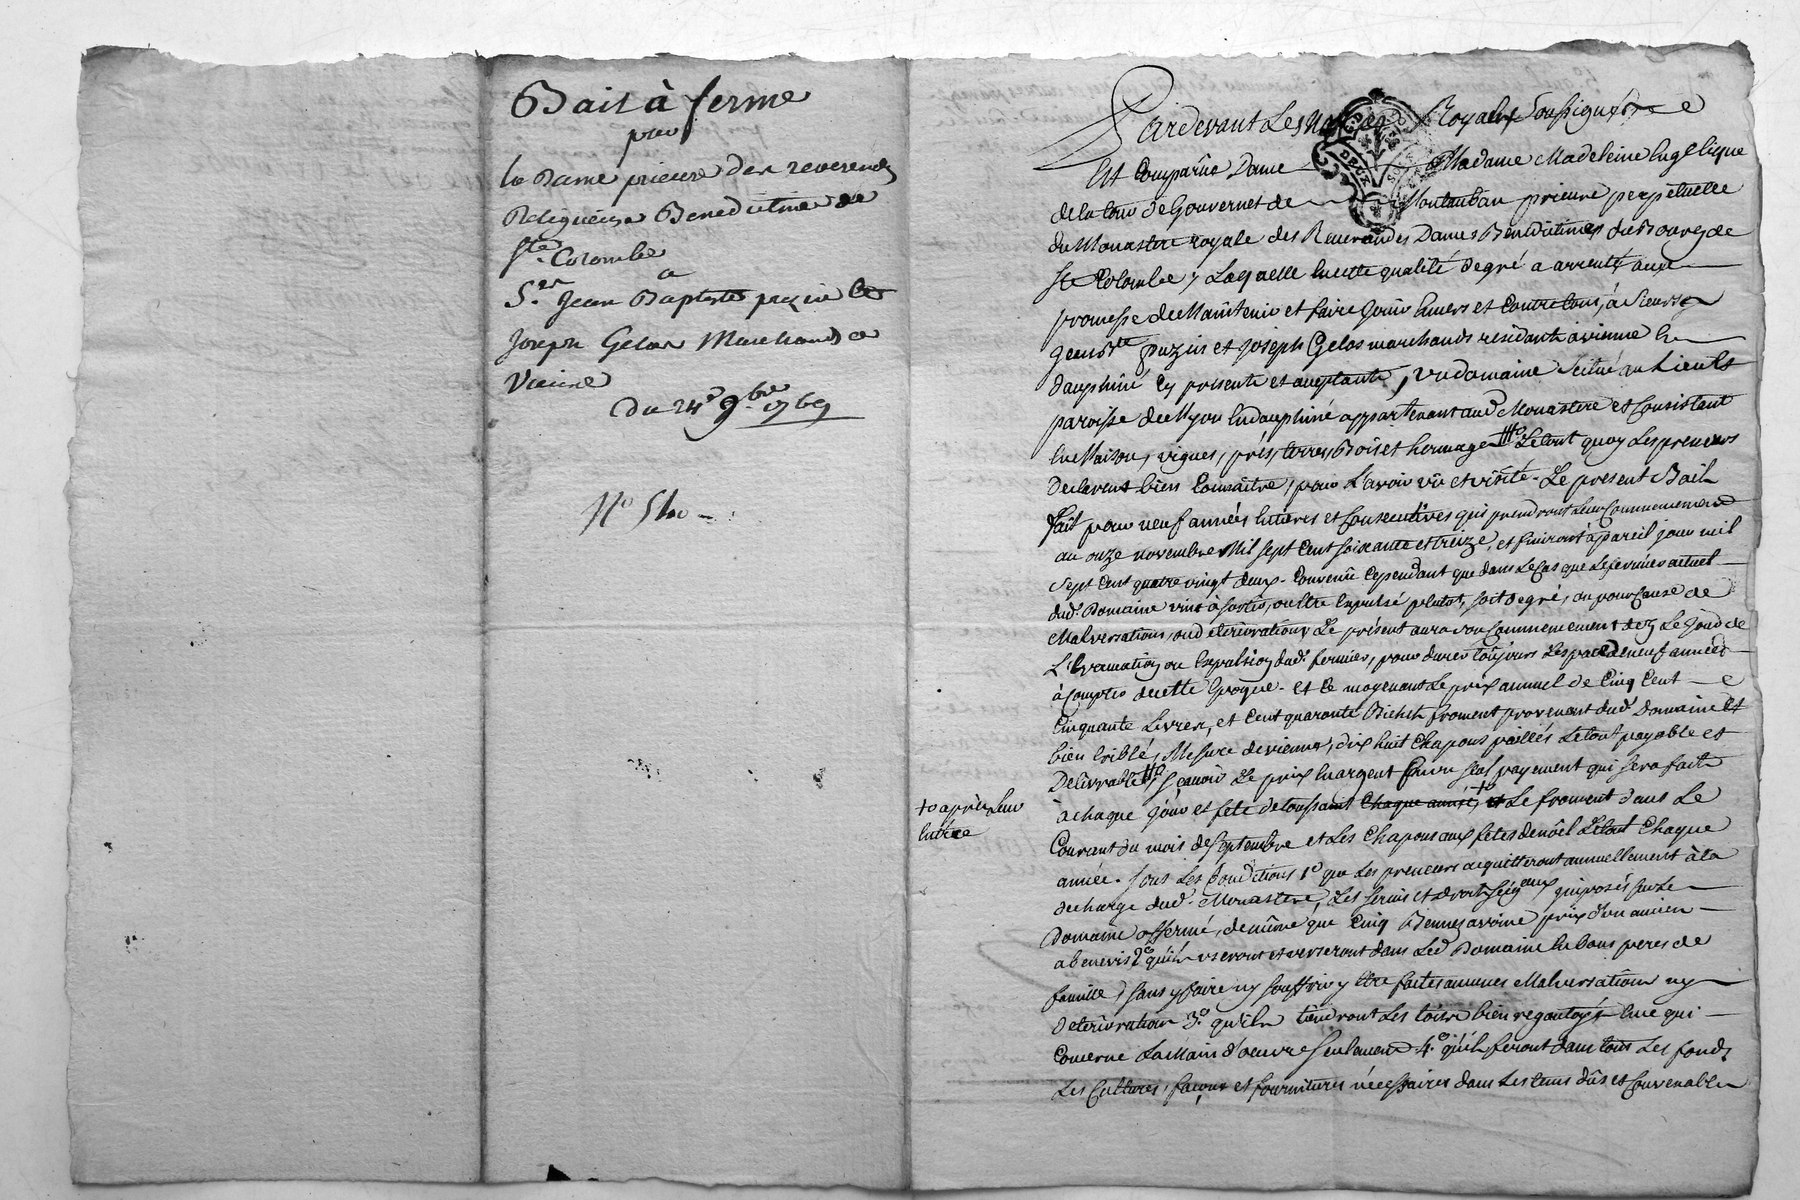 Bail à ferme
pour
la Dame prieure des reverendes
Religieuses Benedictines de
Ste. Colombe
a
Sr. Jean Baptiste puzin et
Joseph Gelas Marchands a
Vienne
Du 24e 9bre 1769
No
Pardevant Les Notaires Royaux Soussignés
Est Comparüe Dame Madame Madeleine Angelique
de la tour de Gouvernet de Montauban prieure perpetuelle
du Monastere royale des Reverandes Dames Benedictines du Bourg de
Ste Colombe, Laquelle en cette qualité de gré a arrenté avec
promesse de Maintenir et faire Jouir envers et contre tous, à Sieurs
Jean Bte puzin et Joseph Gelas marchands residants à vienne en
dauphiné Cy presents et acceptants, un domaine Scitué au Lieu et
paroisse de Moyon en dauphiné appartenant aud. Monastere et Consistant
en Maison, vignes, prés, terres, Bois et hermage Le tout quoy Les preneurs
Declarent bien Connaitre, pour L'avoir vû et visité. Le present Bail
fait pour neuf années entieres et Consecutives qui prendront Leur Commencement
au onze novembre Mil sept Cent soixante et treize, et finiront à pareil jour mil
sept Cent quatre vingt deux. Convenû Cependant que dans Le Cas que Le fermier actuel
dud. Domaine vint à sortir, ou etre Expulsé plutot, soit de gré, ou pour Cause de
Malversations, ou deteriorations Le présent aura son Commencement dez Le Jour de
L'Evacuation ou Expulsion dud. fermier, pour durer toûjours L'espace de neuf années
à Compter de cette Epoque. Et Ce moyenant Le prix annuel de Cinq Cent
Cinquante Livres, et Cent quarante Bichets froment provenant dud. Domaine et
bien Criblé, Mesure de vienne, dix huit Chapons paillés Le tout payable et
Delivrable, sçavoir Le prix en argent En un seul payement qui sera fait
à chaque jour et fête de toussaint Chaque année, et Le froment dans Le
Courant du mois de Septembre et Les Chapons aux fêtes de noël Le tout Chaque
année. sous Les Conditions 1o que Les preneurs acquitteront annuellement à la
decharge dud. Monastere, Les servis et droits seigaux imposés sur Le
Domaine affermé, de même que Cinq Bennes avoine prix d'un ancien
abenevis 2o qu'ils useront et verseront dans Led Domaine En bons peres de
famille, sans y faire ny souffrir y etre faites aucunes Malversations ny
deterioration 3o. qu'ils tiendront Les toits bien regoutoyés En ce qui
Concerne La Main d'oeuvre seulement 4o. qu'ils feront dans tous Les fonds
Les Cultures, façons et fournitures nécessaires dans Les tems dûs et Convenables
+o après leur
entrée